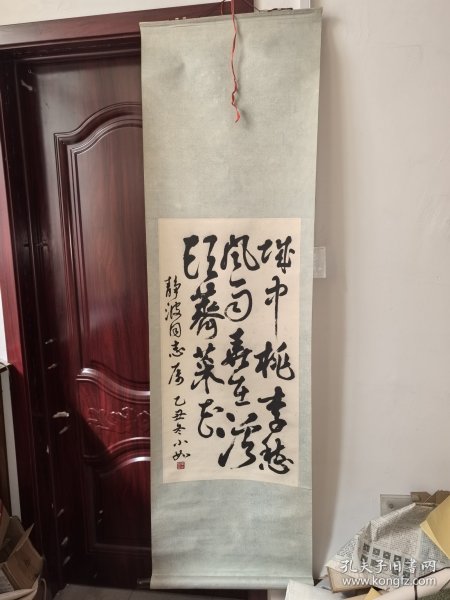 城中桃李愁
風雨春在溪
頭薺菜花
静波同志属 乙丑冬小如
孔夫子旧书网
www.kongfz.com